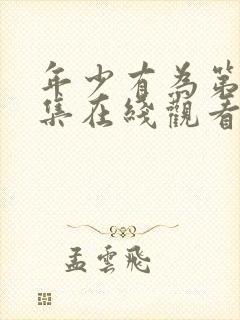 年少有為第
集在綫觀看
孟雲飛